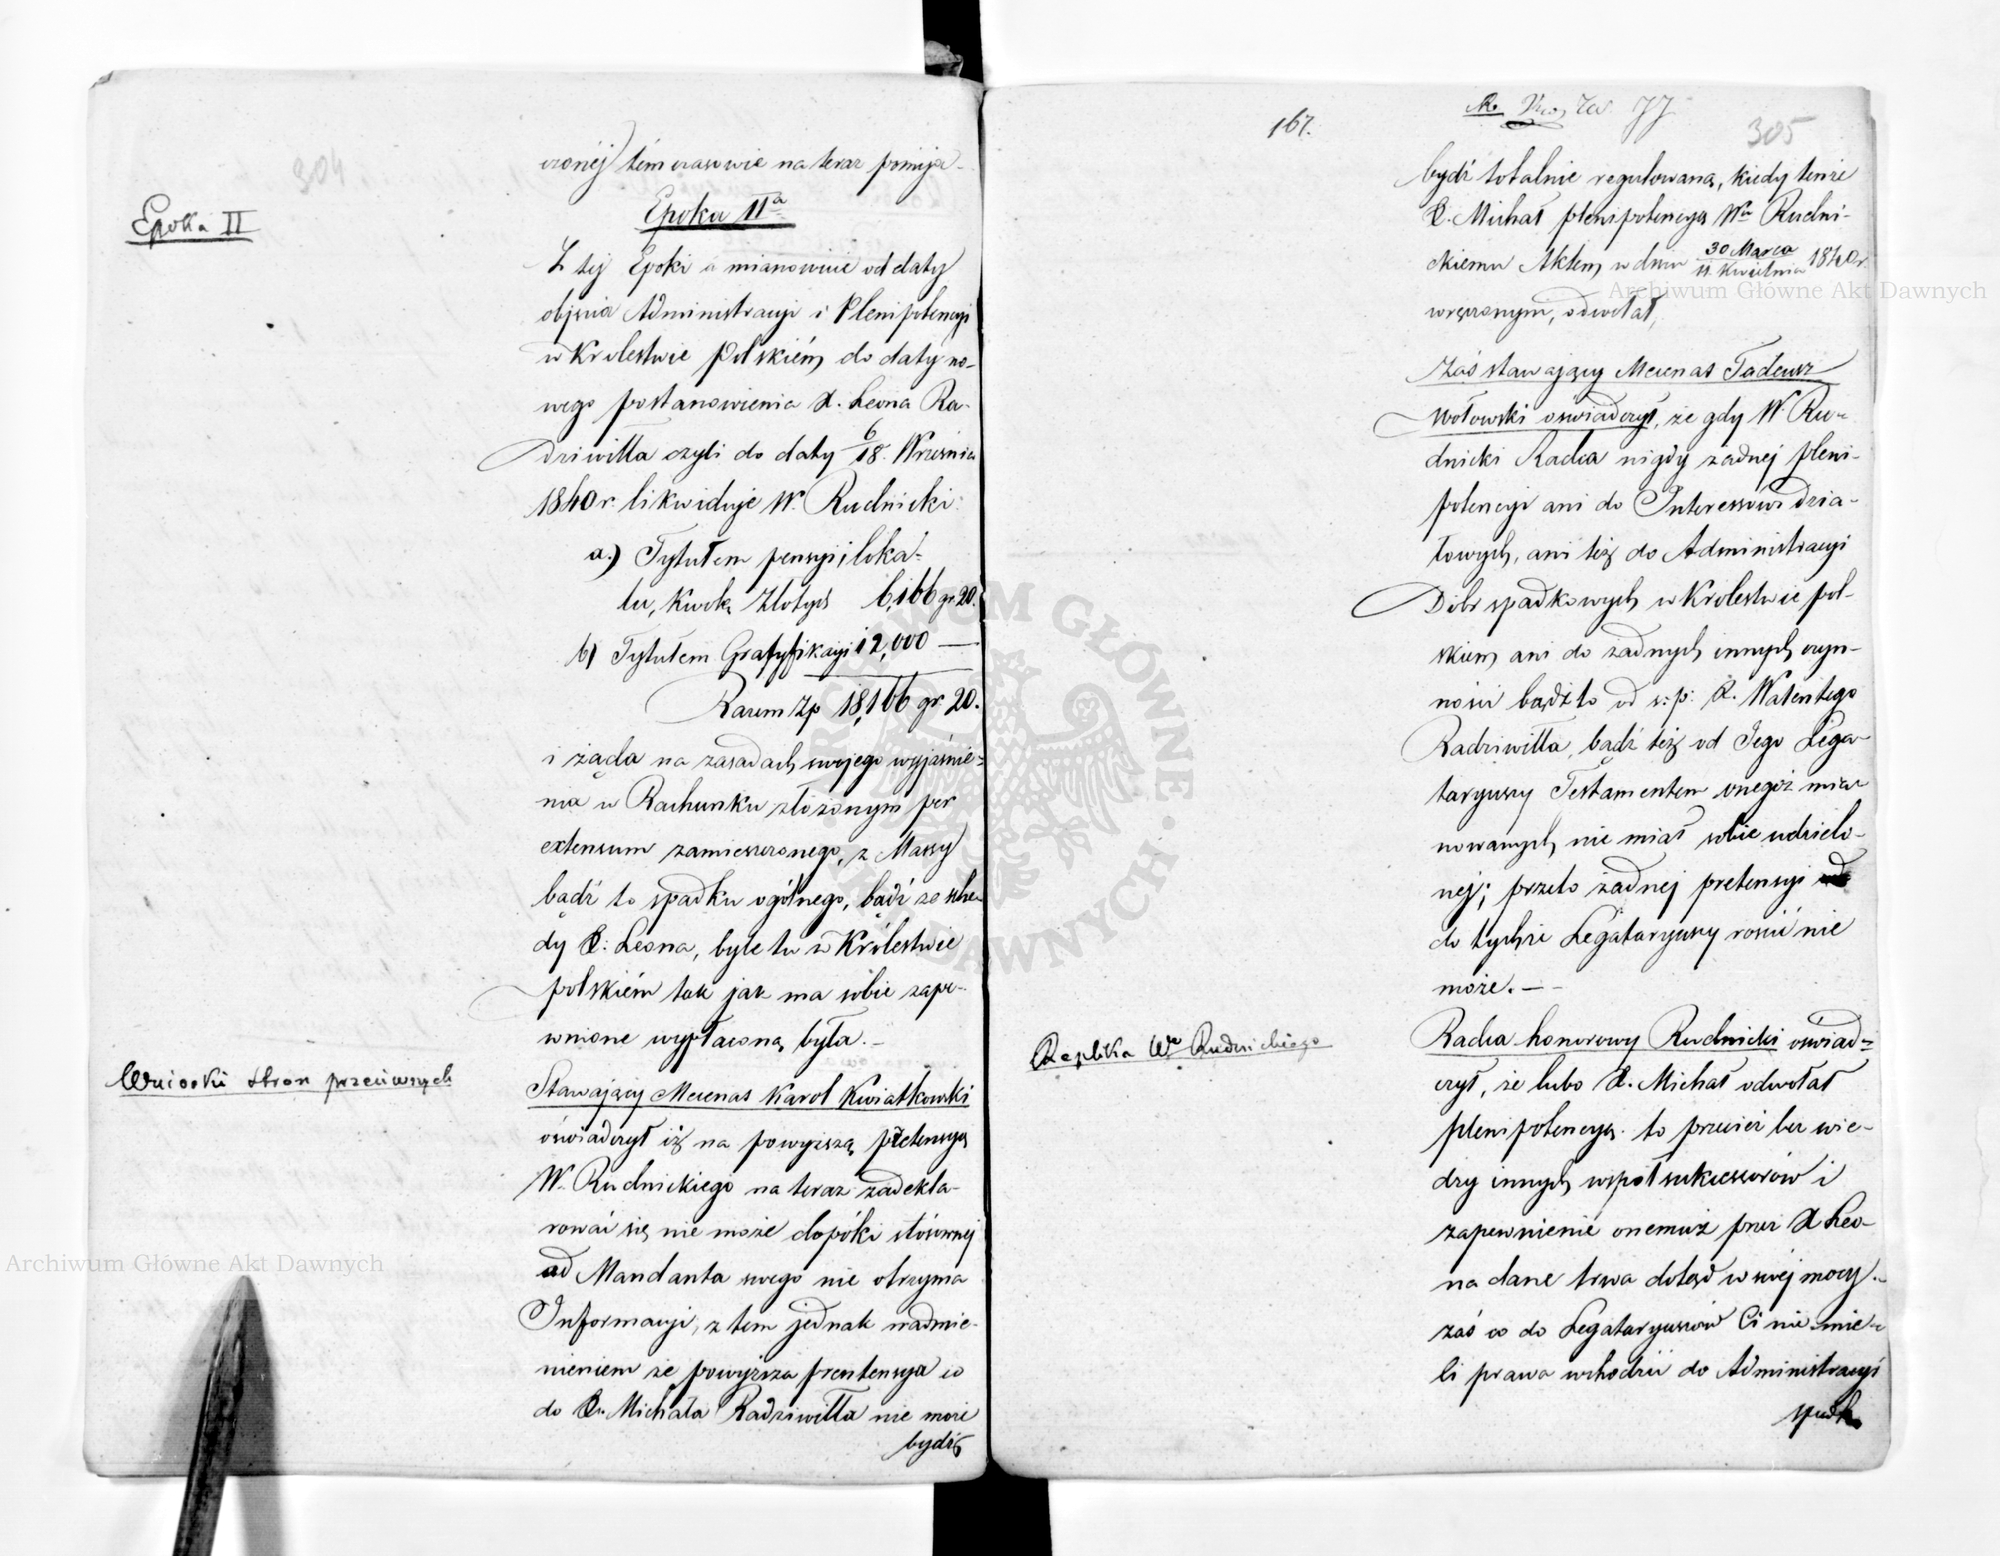 304
czonéj) tém czasowie na teraz pomija.
Epoka II
Epoka IIa
Z tej Epoki a mianowicie od daty
objęcia Administracyi i Plenipotencyi
w Krolestwie Polskiém do daty no-
wego postanowienia X. Leona Ra-
dziwiłła czyli do daty 6/18. Wrzesnia
1840 r. likwiduje W. Rudnicki:
a.) Tytułem pensyi i loka-
lu, kwotę Złotych 6,166 gr 20.
b) Tytułem Gratyfikacyi 12,000 —
Razem Zp 18,166 gr. 20.
i żąda na zasadach swojego wyjaśnie-
nia w Rachunku złożonym per
extensum zamieszczonego, z Massy
bądź to spadku ogólnego, bądź ze sche-
dy X. Leona, byle tu w Królestwie
polskiém tak jak ma sobie zape-
wnione wypłaconą była. —
Wnioski stron przeciwnych
Stawający Mecenas Karol Kwiatkowski
oświadczył iż na powyższą pretensyą
W. Rudnickiego na teraz zadekla-
rować się nie może dopóki stósownej
od Mandanta swego nie otrzyma
Informacyi, z tem jednak nadmie-
nieniem że powyższa pretensya co
do X. Michała Radziwiłła nie może
bydź
167.
305
bydź totalnie regulowaną, kiedy tenże
X. Michał plenipotencyą Wu Rudni-
ckiemu Aktem w dniu 30 Marca/11 Kwietnia 1840 r.
wręczonym, odwołał,
Zaś stawający Mecenas Tadeusz
Wołowski oświadczył, że gdy W. Ru-
dnicki Radca nigdy żadnej pleni-
potencyi ani do Interessów dzia-
łowych, ani też do Administracyi
Dóbr spadkowych w Krolestwie pol-
skiem ani do żadnych innych czyn-
ności bądź to od s: p: X. Walentego
Radziwiłła, bądź też od Jego Lega-
taryuszy Testamentem onegóż mia-
nowanych nie miał sobie udzielo-
nej; przeto żadnej pretensyi
do tychże Legataryuszy rościć nie
może. — -
Replika Wo Rudnickiego
Radca honorowy Rudnicki oświad-
czył, że lubo X. Michał odwołał
plenipotencyą. to przecież bez wie-
dzy innych wspołsukcessorów i
zapewnienie onemuż przez X Leo-
na dane trwa dotąd w swej mocy. -
zaś co do Legataryuszów Ci nie mie-
li prawa wchodzić do Administracyi
spadk
Archiwum Główne Akt Dawnych
Archiwum Główne Akt Dawnych
ARCHIWUM GŁÓWNE AKT DAWNYCH